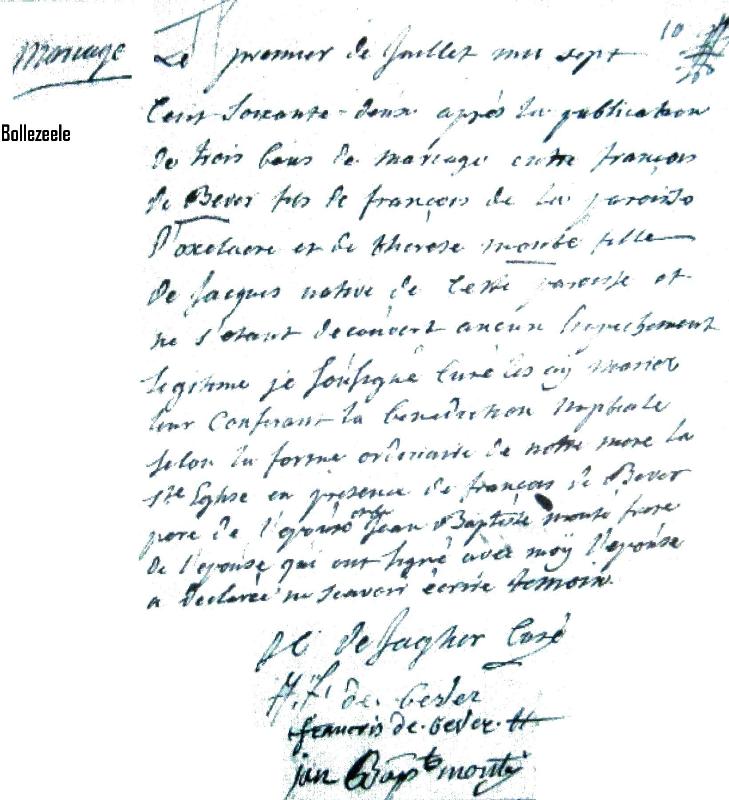 Mariage
Bollezeele
10
Le premier de Juillet mil sept
Cent Soixante-deux après la publication
de trois bans de mariage entre françois
de Bever fils de françois de la paroisse
d'oxelaere et de thérèse monté fille
de Jacques native de cette paroisse et
ne s'étant découvert aucun Empechement
legitime je soussigné Curé les ay mariez
leur Conferant la benediction nuptiale
selon la forme ordinaire de notre mere la
Ste Eglise en presence de françois de Bever
pere de l'epoux et de Jean Baptiste monté frere
de l'epouse qui ont signé avec moÿ l'epouse
a declarée ne scavoir écrire temoin.
de Sagher Curé
de bever
francois de bever
jan Bapte monté